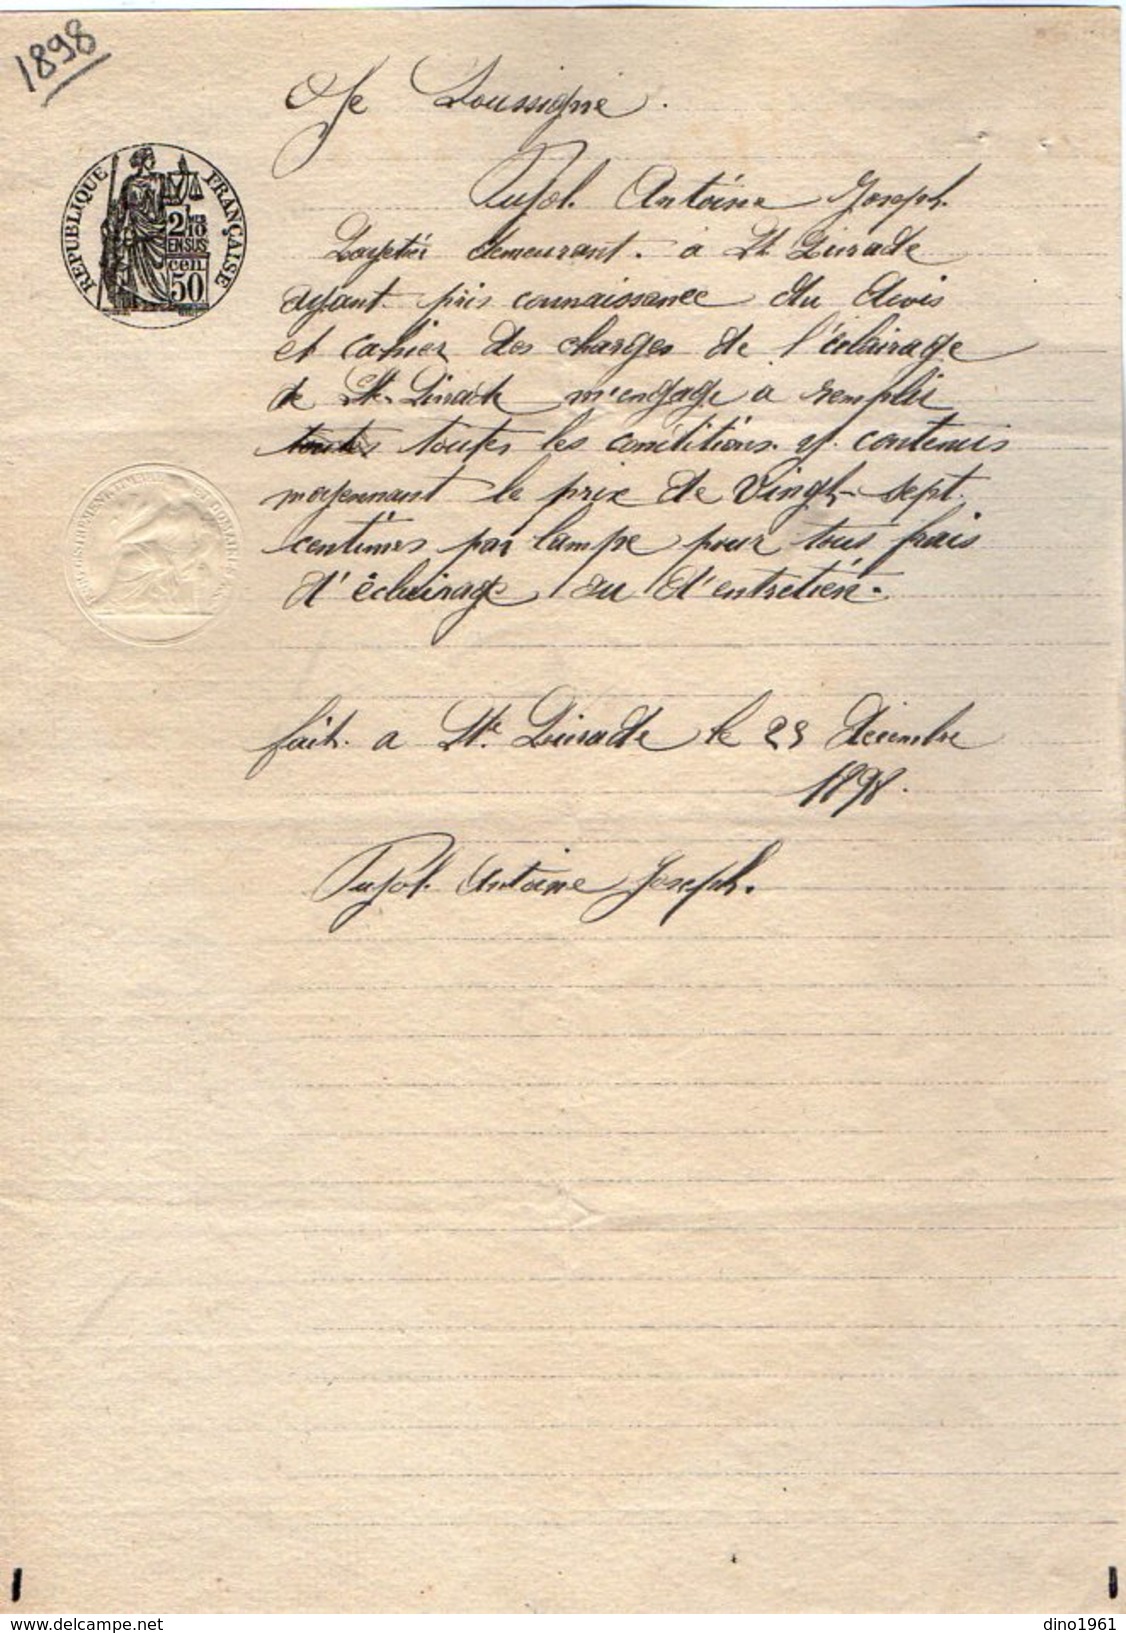 1898
Je Soussigné.
RÉPUBLIQUE FRANÇAISE
2/10 MES
EN SUS
cen.
50
Pujol. Antoine Joseph.
demeurant. à St Livrade
ayant. pris connaissance du devis
et cahier des charges de l'éclairage
de Ste Livrade m'engage a remplir
toutes toutes les conditions. y. contenus
moyennant le prix de Vingt-sept.
centimes par lampe pour tous frais
d'éclairage ou d'entretien.
fait. a Ste. Livrade le 25 décembre
1898.
Pujol. Antoine Joseph.
delcampe.net
dino1961